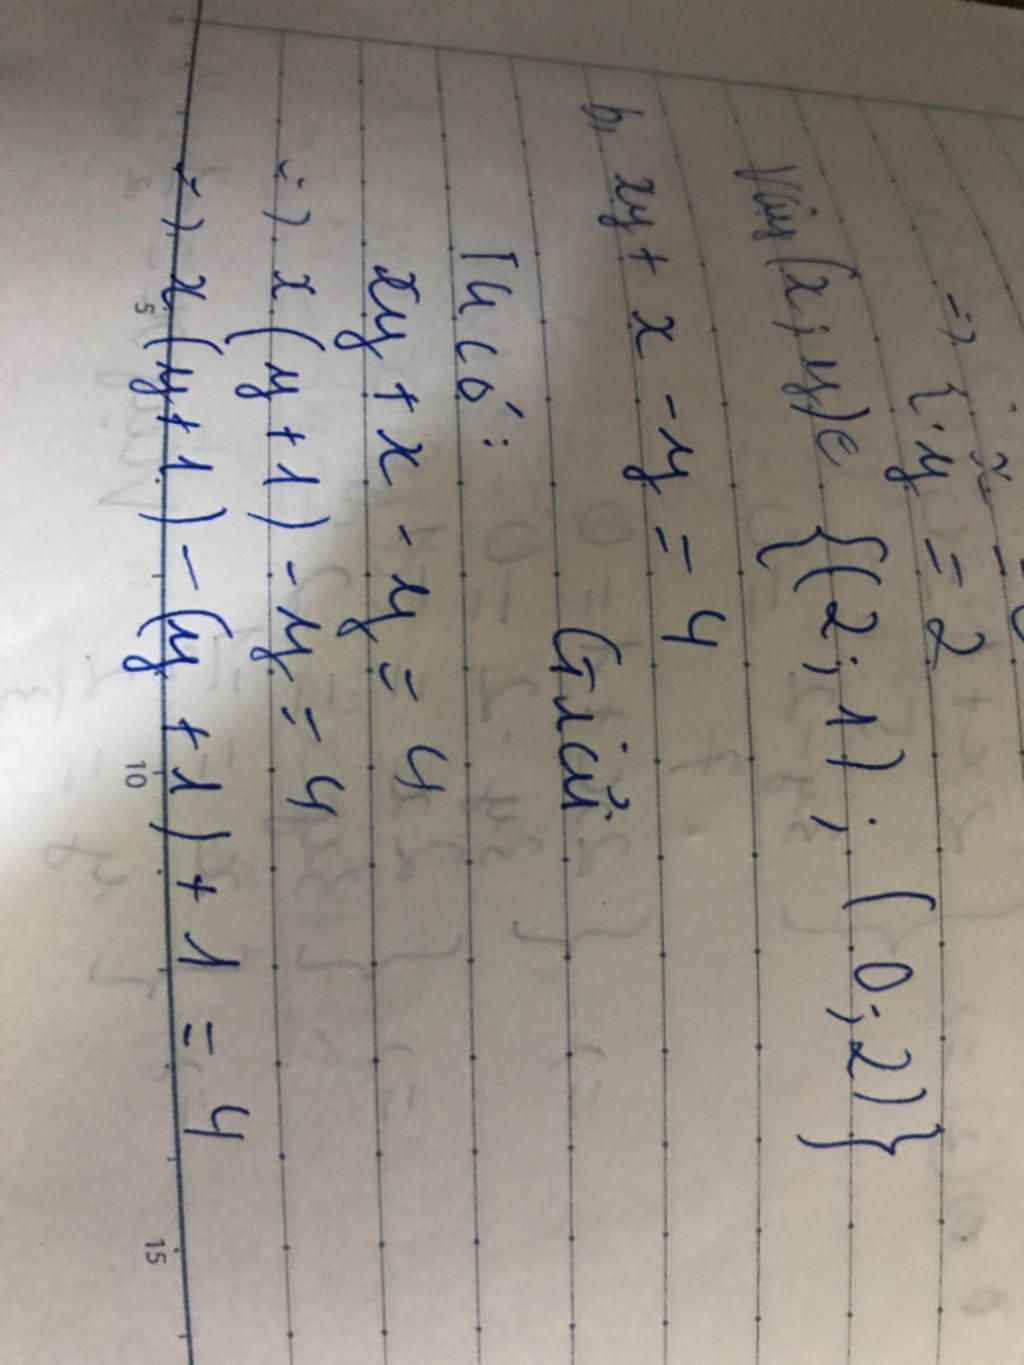 => { y = 2
Vậy (x; y) ∈ {(2; 1); (0; 2)}
b, xy + x - y = 4
Giải
Ta có:
xy + x - y = 4
=> x (y + 1) - y = 4
=> x (y + 1) - (y + 1) + 1 = 4
5
10
15